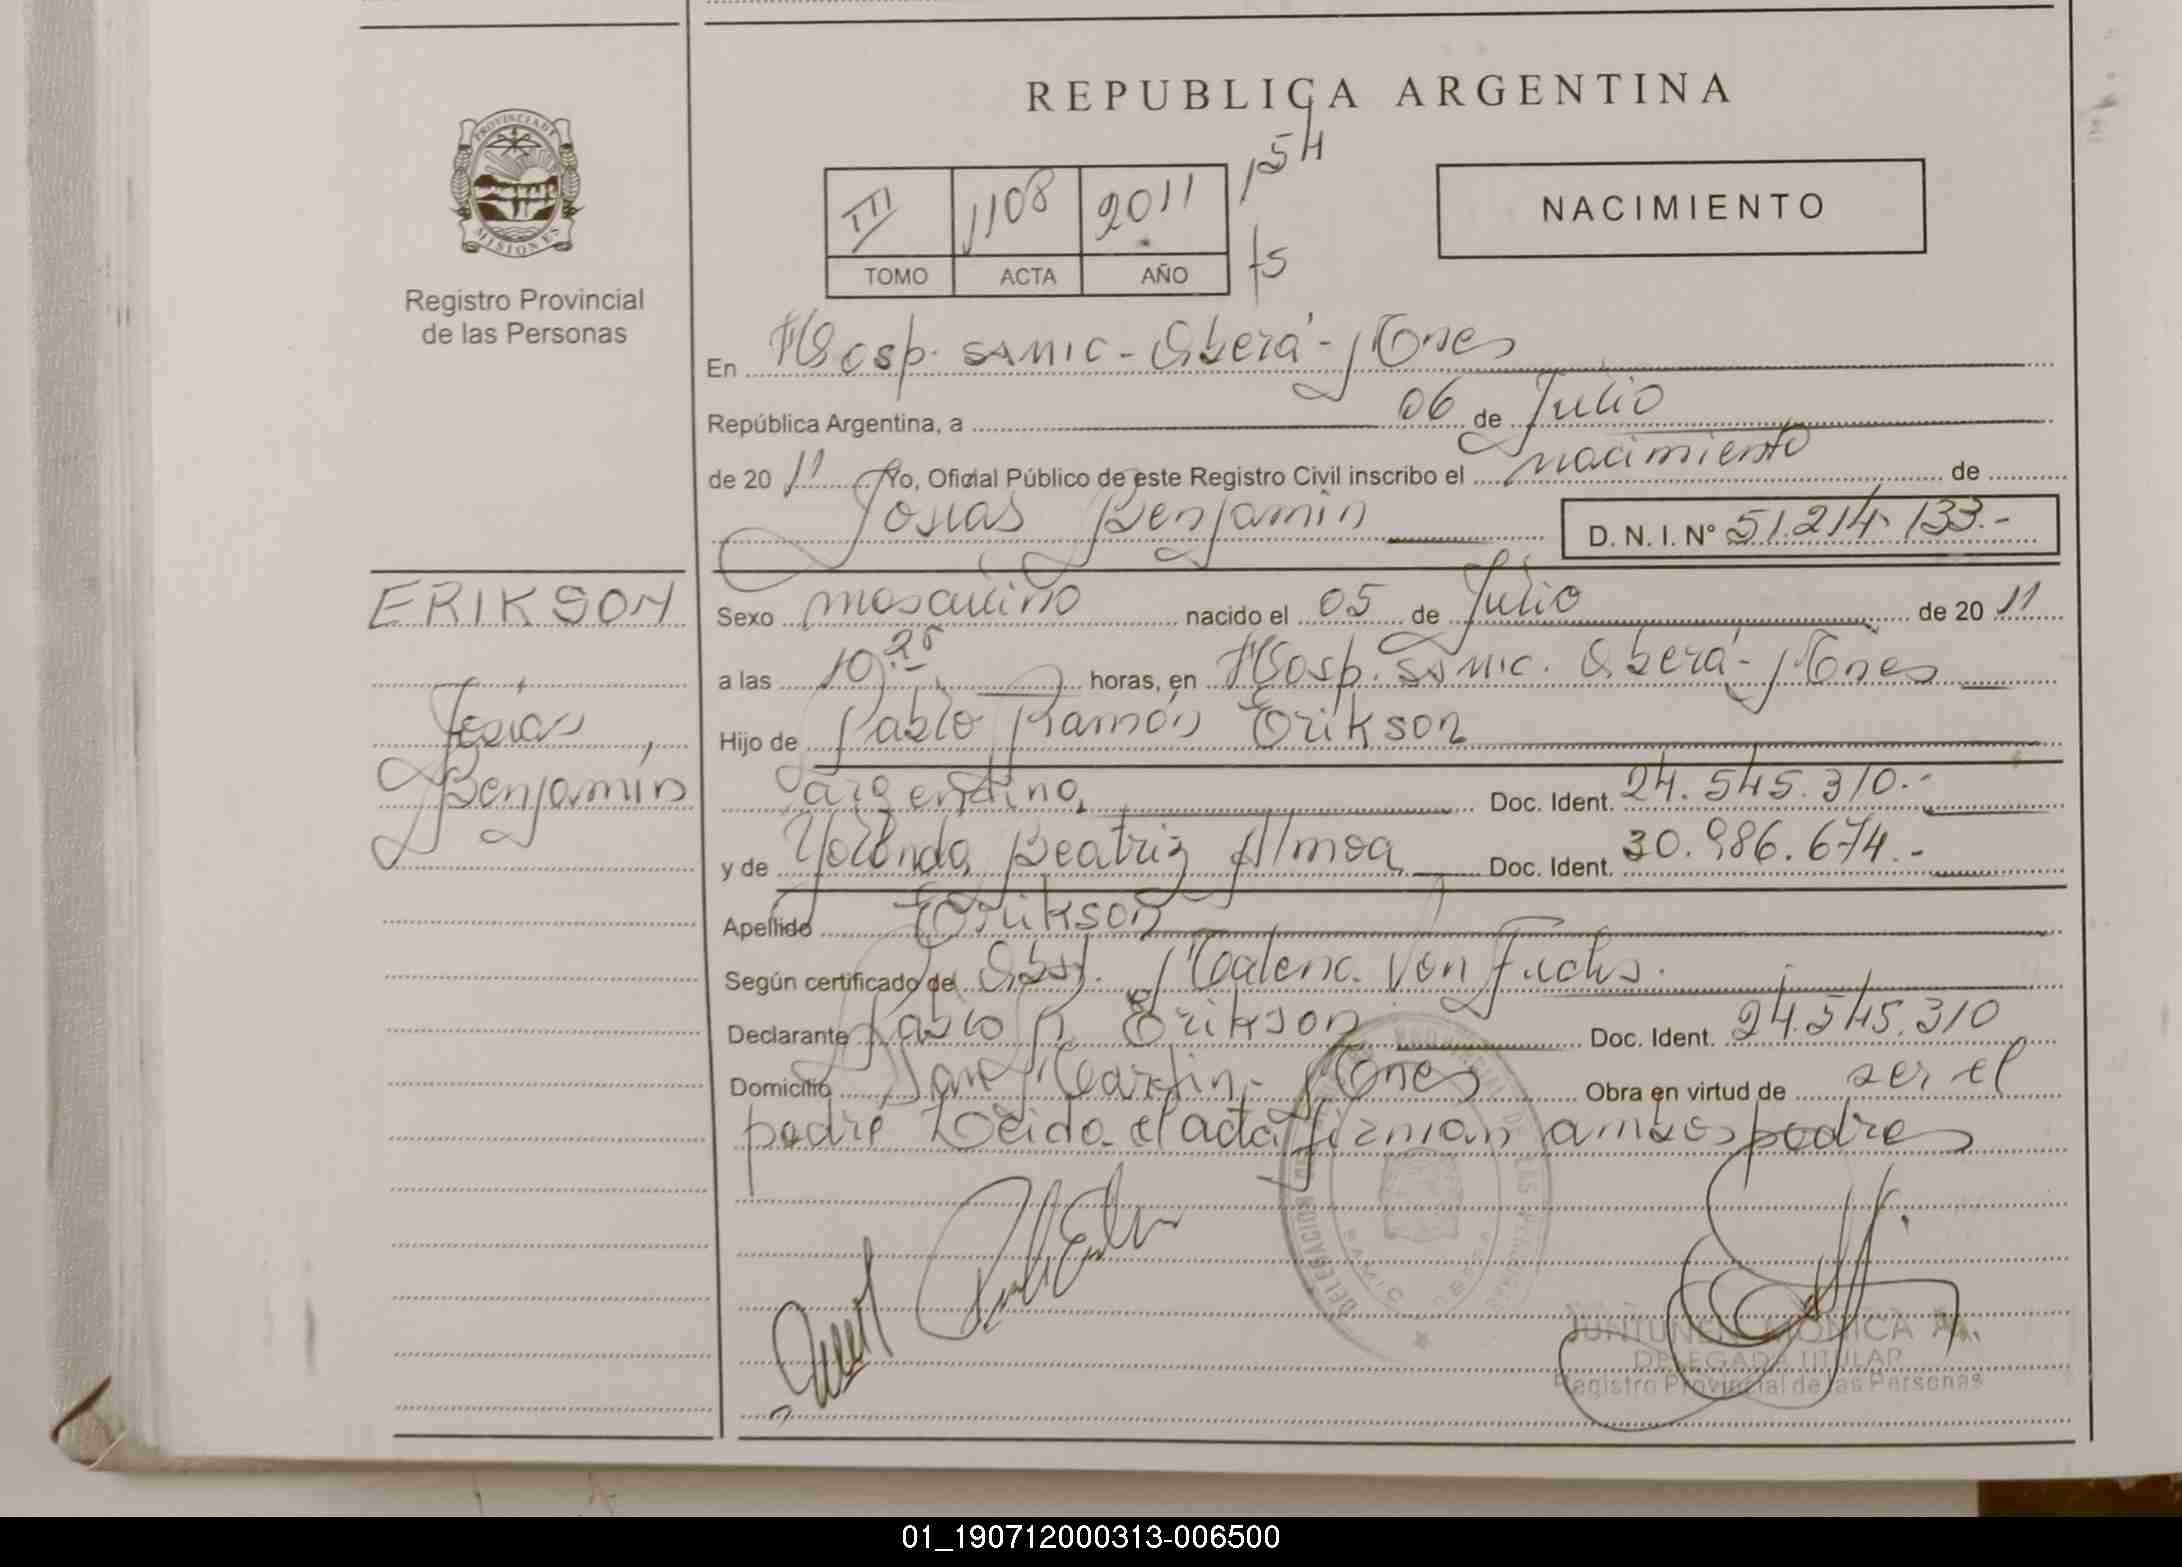 REPUBLICA ARGENTINA
154
III 1108 2011
TOMO ACTA AÑO
fs
NACIMIENTO
PROVINCIA DE
MISIONES
Registro Provincial
de las Personas
En Hosp. SAMIC - Oberá - Mnes
República Argentina, a 06 de Julio
de 20 11 Yo, Oficial Público de este Registro Civil inscribo el nacimiento de
Josias Benjamin D. N. I. Nº 51.214.133.-
ERIKSON
Josias,
Benjamín
Sexo masculino nacido el 05 de Julio de 20 11
a las 10 25 horas, en Hosp. SAMIC. Oberá - Mnes
Hijo de Pablo Ramón Erikson
argentino, Doc. Ident. 24.545.310.-
y de Yolanda Beatriz Almoa Doc. Ident. 30.986.674.-
Apellido Erikson
Según certificado de Obst. Malena Von Fuchs.
Declarante Pablo R. Erikson Doc. Ident. 24.545.310
Domicilio San Martin - Mnes Obra en virtud de ser el
padre Leida el acta firman ambos padres
MONICA
DELEGADA TITULAR
Registro Provincial de las Personas
01_190712000313-006500